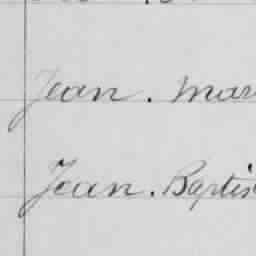 Jean. Mar
Jean. Baptis